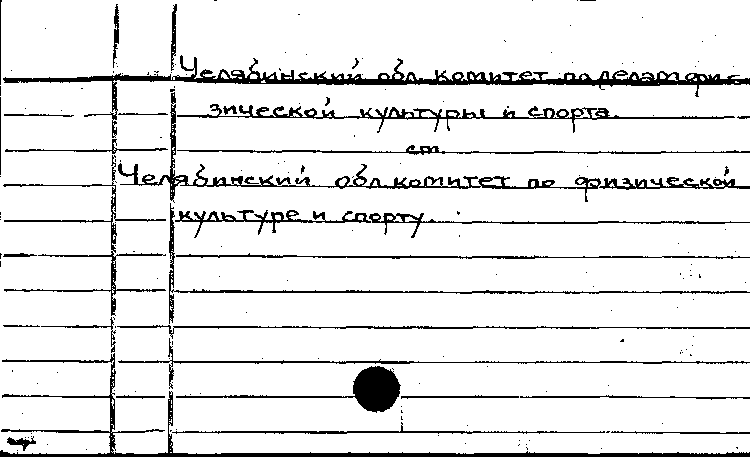 Челябинский обл. комитет по делам физ-
зической культуры и спорта.
см.
Челябинский обл. комитет по физической
культуре и спорту.